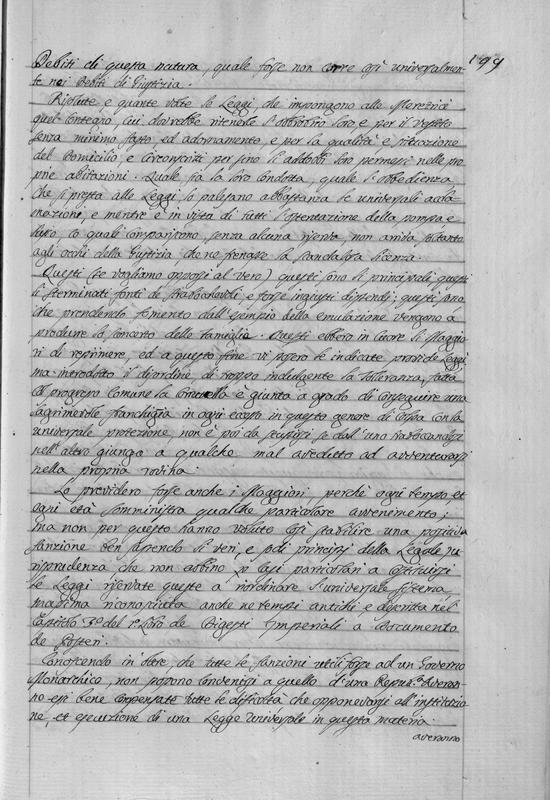 199
Debiti di questa natura, quale forse non corre così universalmen-
te nei Debiti di Giustizia.
Risolute, e quante volte le Leggi, che impongono alle Meretrici
quel contegno, cui dovrebbe ritenerle l'obbrobrio loro, e per il vestito
senza minimo fasto, ed adornamento, e per la qualità, e situazione
del Domicilio, e circoscritti per fino li addobbi loro permessi nelle pro-
prie abitazioni. Quale sia la loro condotta, quale l'obbedienza
che si presta alle Leggi, lo palesano abbastanza le universali accla-
mazioni, e mentre è in vista di tutti l'ostentazione della pompa, e
lusso, co quali compariscono, senza alcuna riserva, non arriva soltanto
agli occhi della Giustizia, che ne frenasse la scandalosa licenza.
Questi (se vogliamo apporsi al vero) questi sono li principali, questi
li sterminati fonti de strabochevoli, e forse ingiusti dispendi; questi sono
che prendendo fomento dall'esempio della emulazione vengono a
produrre lo sconcerto delle famiglie. Questi ebbero in cuore li Maggio-
ri di reprimere, ed a questo fine vi sono le indicate provide Leggi,
ma introdotto il disordine di troppo indulgente la tolleranza, fatta
col progresso comune la è giunta a grado di conseguire una
lagrimevole franchigia in ogni eccesso in questo genere di cosa con la
universale protezione, non è poi da stupirsi se dall'uno
nell'altro giunga a qualche mal aveduto ad avventurarsi
nella propria rovina.
Lo previdero forse anche i Maggiori, perchè ogni tempo, et
ogni età somministra qualche particolare avvenimento;
ma non per questo hanno voluto così stabilire una positiva
sanzione ben sapendo li veri, e sodi principj della Legale Giu-
risprudenza che non abbino ne casi particolari a costituirsi
le Leggi riservate queste a riordinare l'universale sistema,
massima riconosciuta anche ne tempi antichi e descritta nel
Capitolo 3º del 1º Libro de Digesti Imperiali a documento
de Posteri.
Conoscendo in oltre, che tutte le sanzioni utili forse ad un Governo
Monarchico, non possono convenirsi a quello d'una Repub.ª averan-
no essi bene compensate tutte le difficoltà che opponevansi all'instituzio-
ne, et esecuzione di una Legge Universale in questa materia.
averanno